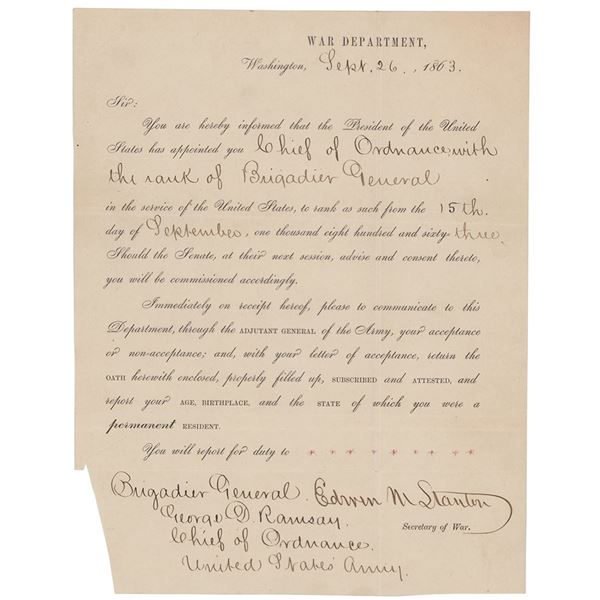 WAR DEPARTMENT,
Washington, Sept. 26., 1863.
Sir:
You are hereby informed that the President of the United
States has appointed you Chief of Ordnance, with
the rank of Brigadier General
in the service of the United States, to rank as such from the 15th.
day of September, one thousand eight hundred and sixty-three.
Should the Senate, at their next session, advise and consent thereto,
you will be commissioned accordingly.
Immediately on receipt hereof, please to communicate to this
Department, through the ADJUTANT GENERAL of the Army, your acceptance
or non-acceptance; and, with your letter of acceptance, return the
OATH herewith enclosed, properly filled up, SUBSCRIBED and ATTESTED, and
report your AGE, BIRTHPLACE, and the STATE of which you were a
permanent RESIDENT.
You will report for duty to * * * * * * * * *
Brigadier General Edwin M Stanton
George D. Ramsay, Secretary of War.
Chief of Ordnance.
United States Army.